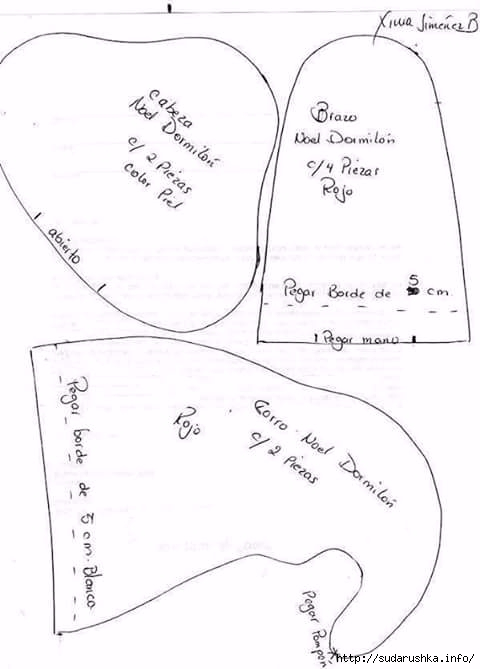 Xima Jiménez B
Cabeza
Noel Dormilón
c/ 2 Piezas
Color Piel
abierto
Brazo
Noel Dormilón
c/4 Piezas
Rojo
Pegar Borde de 5 cm.
Pegar mano
Pegar borde de 5 cm. Blanco
Rojo
Gorro. Noel Dormilón
c/ 2 Piezas
Pegar Pompón
http://sudarushka.info/